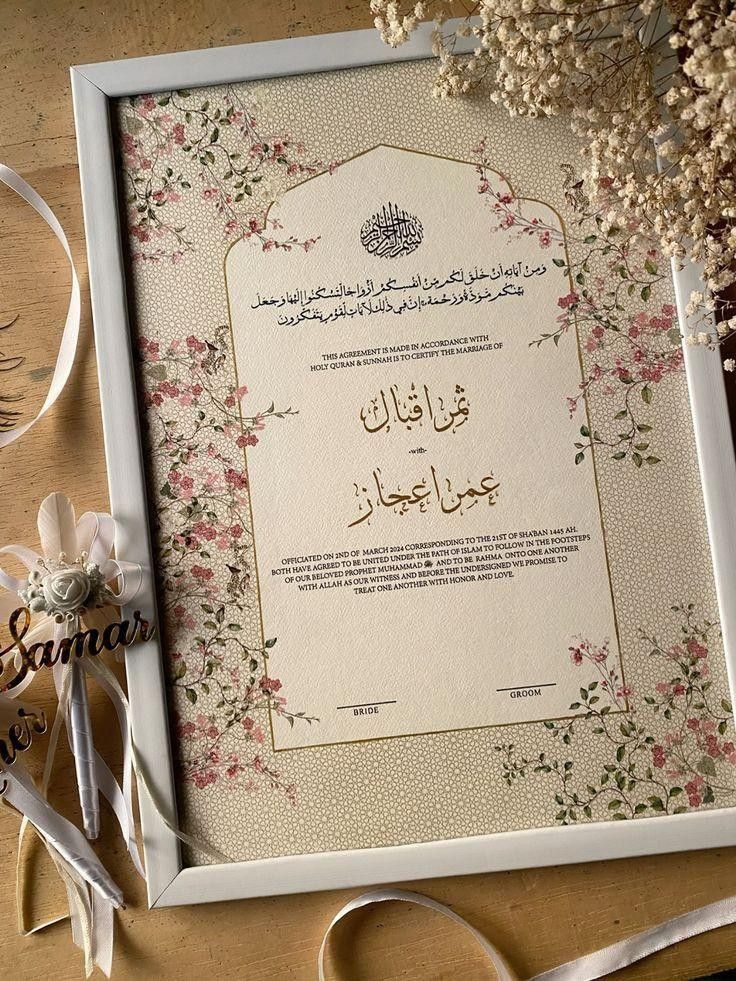 بسم الله الرحمن الرحيم
وَمِنْ آيَاتِهِ أَنْ خَلَقَ لَكُم مِّنْ أَنفُسِكُمْ أَزْوَاجًا لِّتَسْكُنُوا إِلَيْهَا وَجَعَلَ
بَيْنَكُم مَّوَدَّةً وَرَحْمَةً إِنَّ فِي ذَٰلِكَ لَآيَاتٍ لِّقَوْمٍ يَتَفَكَّرُونَ
THIS AGREEMENT IS MADE IN ACCORDANCE WITH
HOLY QURAN & SUNNAH IS TO CERTIFY THE MARRIAGE OF
ثمر اقبال
-with-
عمر اعجاز
OFFICIATED ON 2ND OF MARCH 2024 CORRESPONDING TO THE 21ST OF SHA'BAN 1445 AH.
BOTH HAVE AGREED TO BE UNITED UNDER THE PATH OF ISLAM TO FOLLOW IN THE FOOTSTEPS
OF OUR BELOVED PROPHET MUHAMMAD ﷺ AND TO BE RAHMA ONTO ONE ANOTHER
WITH ALLAH AS OUR WITNESS AND BEFORE THE UNDERSIGNED WE PROMISE TO
TREAT ONE ANOTHER WITH HONOR AND LOVE.
BRIDE
GROOM
Samar